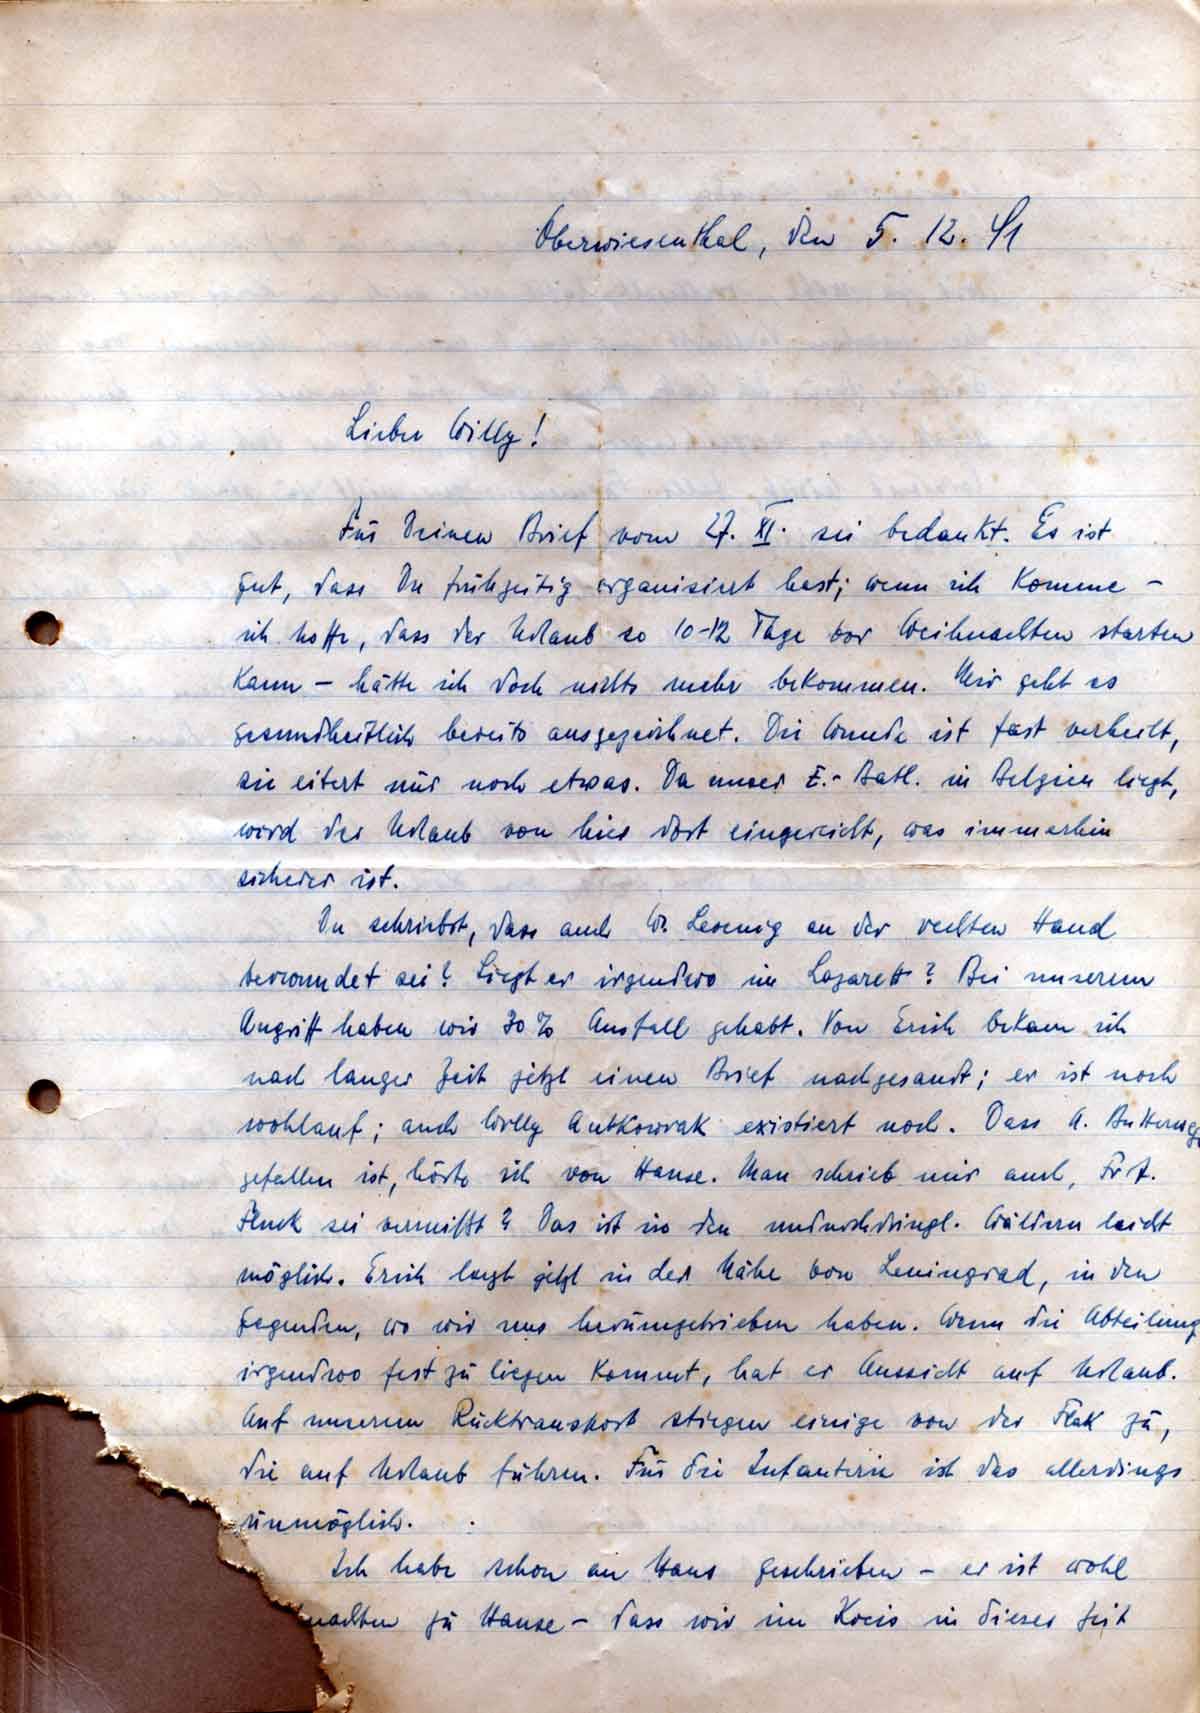 Oberwiesenthal, den 5. 12. 41
Lieber Willy!
Für Deinen Brief vom 27. XI. sei bedankt. Es ist
gut, dass Du frühzeitig organisiert hast; wenn ich komme –
ich hoffe, dass der Urlaub so 10-12 Tage vor Weihnachten starten
kann – hätte ich doch nichts mehr bekommen. Mir geht es
gesundheitlich bereits ausgezeichnet. Die Wunde ist fast verheilt,
sie eitert nur noch etwas. Da unser E.-Batl. in Belgien liegt,
wird der Urlaub von hier dort eingereicht, was immerhin
sicherer ist.
Du schriebst, dass auch W. Lesenig an der rechten Hand
verwundet sei? Liegt er irgendwo im Lazarett? Bei unserem
Angriff haben wir 30% Ausfall gehabt. Von Erich bekam ich
nach langer Zeit jetzt einen Brief nachgesandt; er ist noch
wohlauf; auch Willy Antkowiak existiert noch. Dass A.
gefallen ist, hörte ich von Hause. Man schrieb mir auch,
sei vermißt? Das ist in den undurchdringl. Wäldern leicht
möglich. Erich liegt jetzt in der Nähe von Leningrad, in den
Gegenden, wo wir uns herumgetrieben haben. Wenn die Abteilung
irgendwo fest zu liegen kommt, hat er Aussicht auf Urlaub.
Auf unserem Rücktransport stiegen einige von der Flak zu,
die auf Urlaub fuhren. Für die Infanterie ist das allerdings
unmöglich.
Ich habe schon an Hans geschrieben – er ist wohl
nachten zu Hause – dass wir im Kreis in dieser Zeit